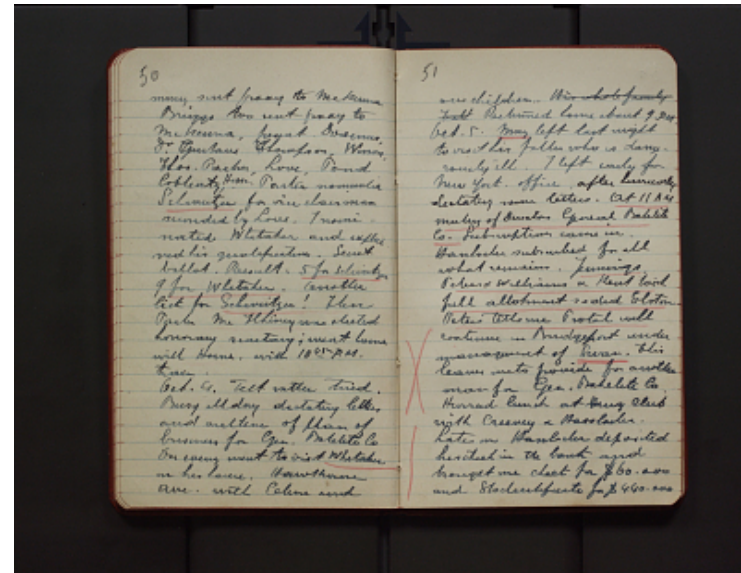 50
money sent proxy to McKenna
Briggs too sent proxy to
McKenna, present
Dr Gustave Thompson,
Thos. Parker, Love, Pond
Coblentz, Parker nominates
Schweitzer for vice chairman
seconded by Love. I nomi-
nated Whitaker and explai
ned his qualification. Secret
ballot. Result: 5 for Schweitzer
9 for Whitaker. Another
for Schweitzer! Then
Parker Mc was elected
honorary secretary; went home
with Horne, with 10 05 P.M.
train.
Oct. 4. Felt rather tired.
Busy all day dictating letters
and outline of plan of
business for Gen. Bakelite Co
In evening went to visit Whitaker
in his house. Hawthorne
ave. with Celine and
51
our children. His whole family
Returned home about 9 P.M.
Oct. 5. left last night
to visit her father who is dang-
erously ill. I left early for
New York. office, after
dictating some letters. At 11 A.M.
meeting of Directors General Bakelite
Co. Subscriptions came in.
Hasslacher subscribed for all
what remains. Jennings
Peters & Williams & took
full allotment
Peters tells me Protal will
continue in Bridgeport under
management of Swan. This
leaves us to provide for another
man for Gen. Bakelite Co
Hurried lunch at Drug Club
with Creevey & Hasslacher.
Later on Hasslacher deposited
in the bank and
brought me check for $60.000
and Stockcertificate for $440.000